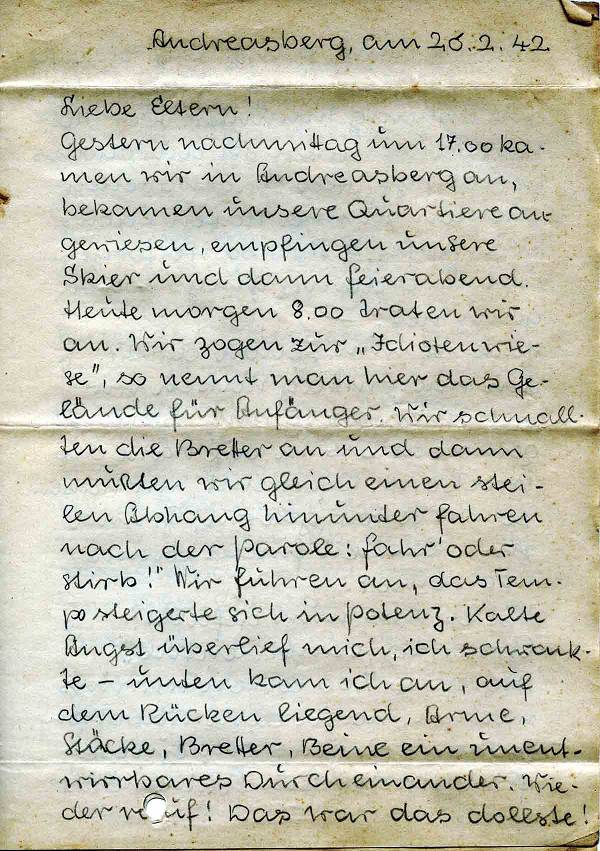 Andreasberg, am 26.2.42
Liebe Eltern!
Gestern nachmittag um 17.00 ka-
men wir in Andreasberg an,
bekamen unsere Quartiere an-
gewiesen, empfingen unsere
Skier und dann feierabend.
Heute morgen 8.00 traten wir
an. Wir zogen zur „Idiotenwie-
se", so nennt man hier das Ge-
lände für Anfänger. Wir schnall-
ten die Bretter an und dann
mußten wir gleich einen stei-
len Abhang hinunter fahren
nach der Parole: fahr' oder
stirb!" Wir fuhren an, das Tem-
po steigerte sich in Potenz. Kalte
Angst überlief mich, ich schwank-
te – unten kam ich an, auf
dem Rücken liegend, Arme,
Stöcke, Bretter, Beine ein unent-
wirrbares Durcheinander. Wie-
der rauf! Das war das dollste!